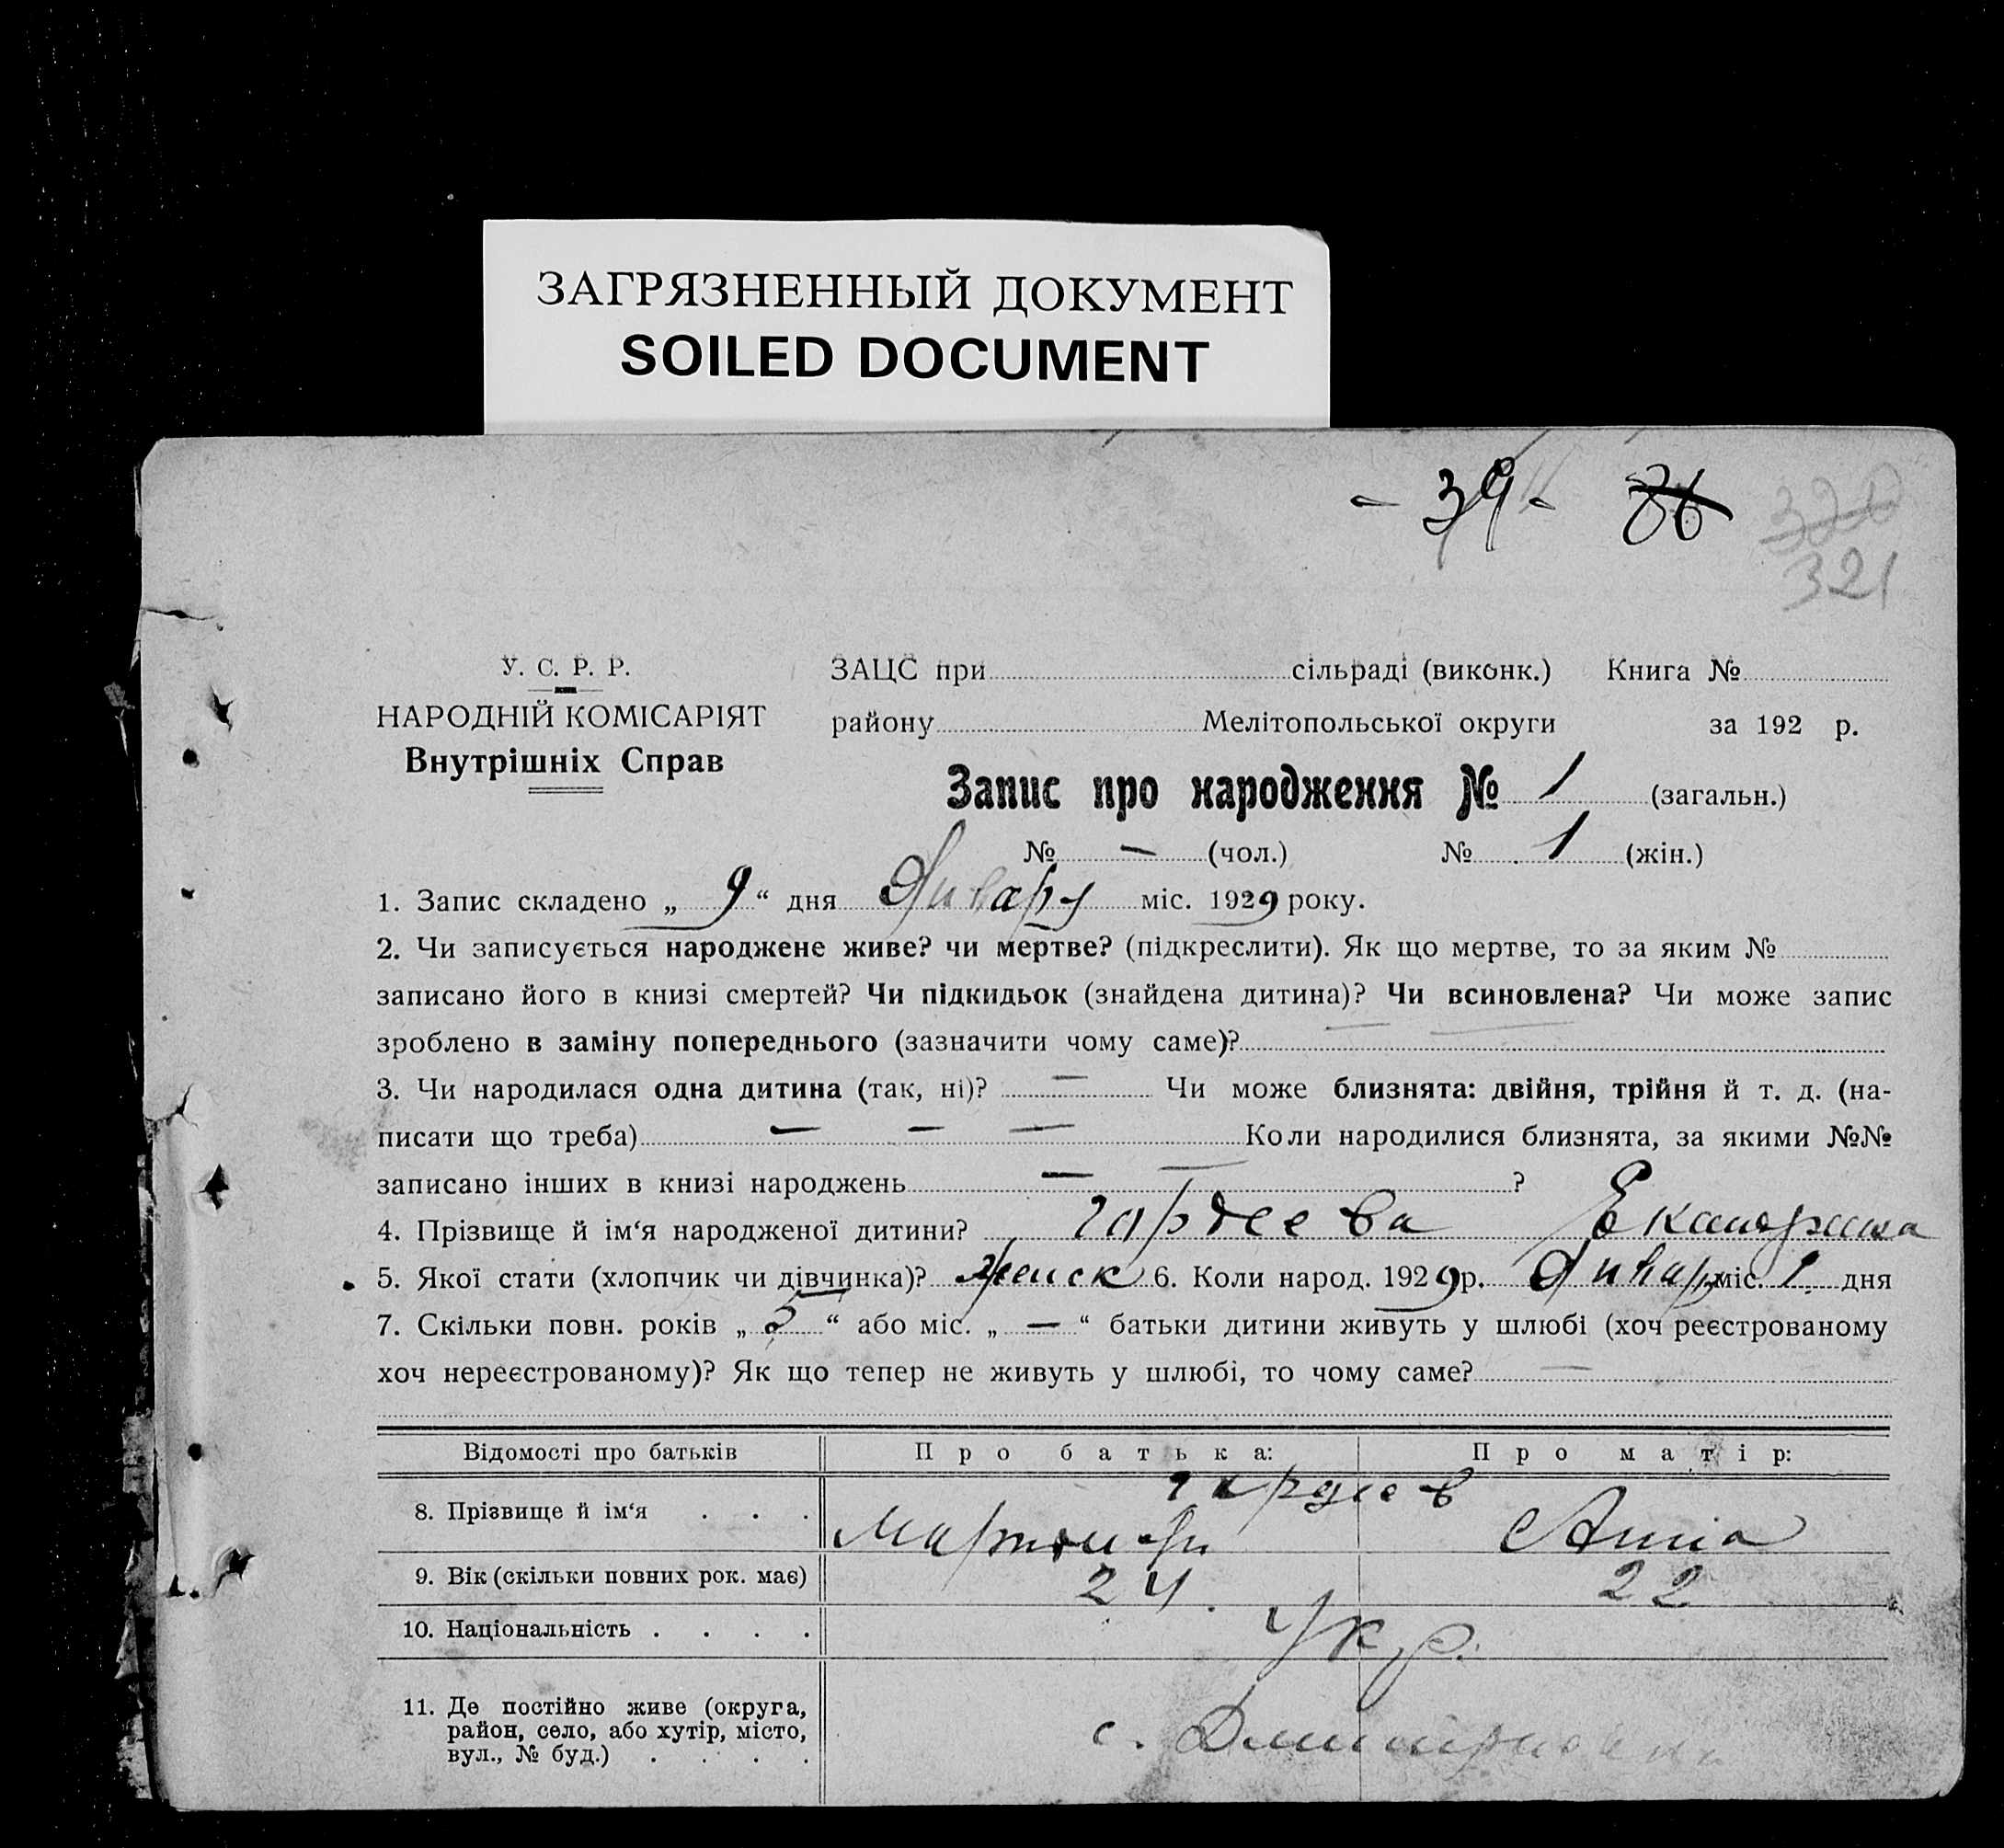 ЗАГРЯЗНЕННЫЙ ДОКУМЕНТ
SOILED DOCUMENT
- 39 - 36 320
321
У. С. Р. Р.
НАРОДНІЙ КОМІСАРІЯТ
Внутрішніх Справ
ЗАЦС при сільраді (виконк.) Книга №
району Мелітопольської округи за 192 р.
Запис про народження № 1 (загальн.)
№ — (чол.) № 1 (жін.)
1. Запис складено „ 9 “ дня Января міс. 1929 року.
2. Чи записується народжене живе? чи мертве? (підкреслити). Як що мертве, то за яким №
записано його в книзі смертей? Чи підкидьок (знайдена дитина)? Чи всиновлена? Чи може запис
зроблено в заміну попереднього (зазначити чому саме)?
3. Чи народилася одна дитина (так, ні)? — Чи може близнята: двійня, трійня й т. д. (на-
писати що треба) — — — Коли народилися близнята, за якими №№
записано інших в книзі народжень — ?
4. Прізвище й ім‘я народженої дитини? Гардеева Екатерина
5. Якої стати (хлопчик чи дівчинка)? женск 6. Коли народ. 1929 р. Январ міс. 1 дня
7. Скільки повн. років „ “ або міс. „ — “ батьки дитини живуть у шлюбі (хоч реєстрованому
хоч нереєстрованому)? Як що тепер не живуть у шлюбі, то чому саме? —
Відомості про батьків Про батька: Про матір:
Гардеев
8. Прізвище й ім‘я . . . Анна
9. Вік (скільки повних рок. має) 24. 22
10. Національність . . . . Укр.
11. Де постійно живе (округа,
район, село, або хутір, місто,
вул., № буд.) . . . .
с. Дмитровка